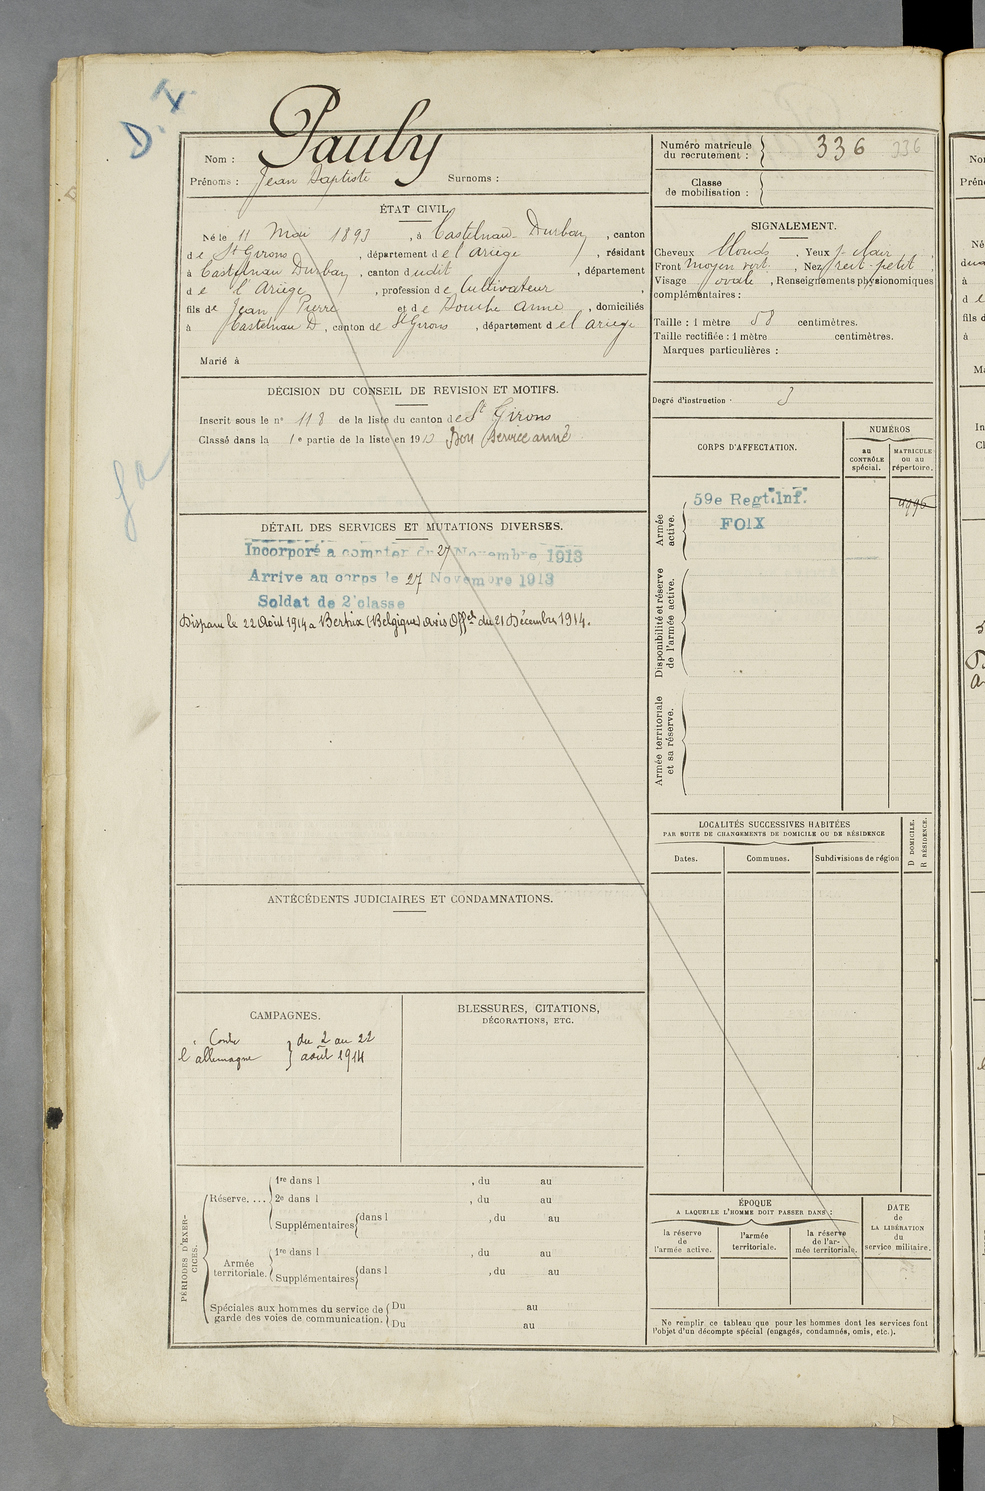 D. I.
Nom : Pauly
Prénoms : Jean Baptiste Surnoms :
Numéro matricule du recrutement : 336 336
Classe de mobilisation :
ÉTAT CIVIL.
Né le 11 Mai 1893, à Castelnau-Durban, canton
de St Girons, département de l'Ariège, résidant
à Castelnau Durban, canton dudit, département
de l'Ariège, profession de Cultivateur,
fils de Jean Pierre et de Anne, domiciliés
à Castelnau D, canton de St Girons, département de l'Ariège
Marié à
SIGNALEMENT.
Cheveux blonds, Yeux Clair,
Front moyen vert., Nez rect. petit,
Visage ovale, Renseignements physionomiques
complémentaires :
Taille : 1 mètre 58 centimètres.
Taille rectifiée : 1 mètre centimètres.
Marques particulières :
Degré d'instruction. 3
DÉCISION DU CONSEIL DE REVISION ET MOTIFS.
Inscrit sous le n° 118 de la liste du canton de St Girons
Classé dans la 1e partie de la liste en 1913 Bon Service armé
CORPS D'AFFECTATION.
NUMÉROS
au CONTRÔLE spécial.
MATRICULE ou au répertoire.
Armée active.
59e Regt. Inf.
FOIX
4996
Disponibilité et réserve de l'armée active.
Armée territoriale et sa réserve.
DÉTAIL DES SERVICES ET MUTATIONS DIVERSES.
Incorporé a compter du 27 Novembre 1913
Arrive au corps le 27 Novembre 1913
Soldat de 2e classe
Disparu le 22 Août 1914 a Bertrix (Belgique) avis Offel du 21 Décembre 1914.
LOCALITÉS SUCCESSIVES HABITÉES
PAR SUITE DE CHANGEMENTS DE DOMICILE OU DE RÉSIDENCE
Dates.
Communes.
Subdivisions de région
D DOMICILE.
R RÉSIDENCE.
ANTÉCÉDENTS JUDICIAIRES ET CONDAMNATIONS.
CAMPAGNES.
Contre l'allemagne } du 2 au 22 août 1914
BLESSURES, CITATIONS,
DÉCORATIONS, ETC.
PÉRIODES D'EXERCICES.
Réserve. ...
1re dans l , du au
2e dans l , du au
Supplémentaires dans l , du au
Armée territoriale.
1re dans l , du au
Supplémentaires dans l , du au
Spéciales aux hommes du service de garde des voies de communication.
Du au
Du au
ÉPOQUE
A LAQUELLE L'HOMME DOIT PASSER DANS :
la réserve de l'armée active.
l'armée territoriale.
la réserve de l'armée territoriale.
DATE de LA LIBÉRATION du service militaire.
Ne remplir ce tableau que pour les hommes dont les services font
l'objet d'un décompte spécial (engagés, condamnés, omis, etc.).